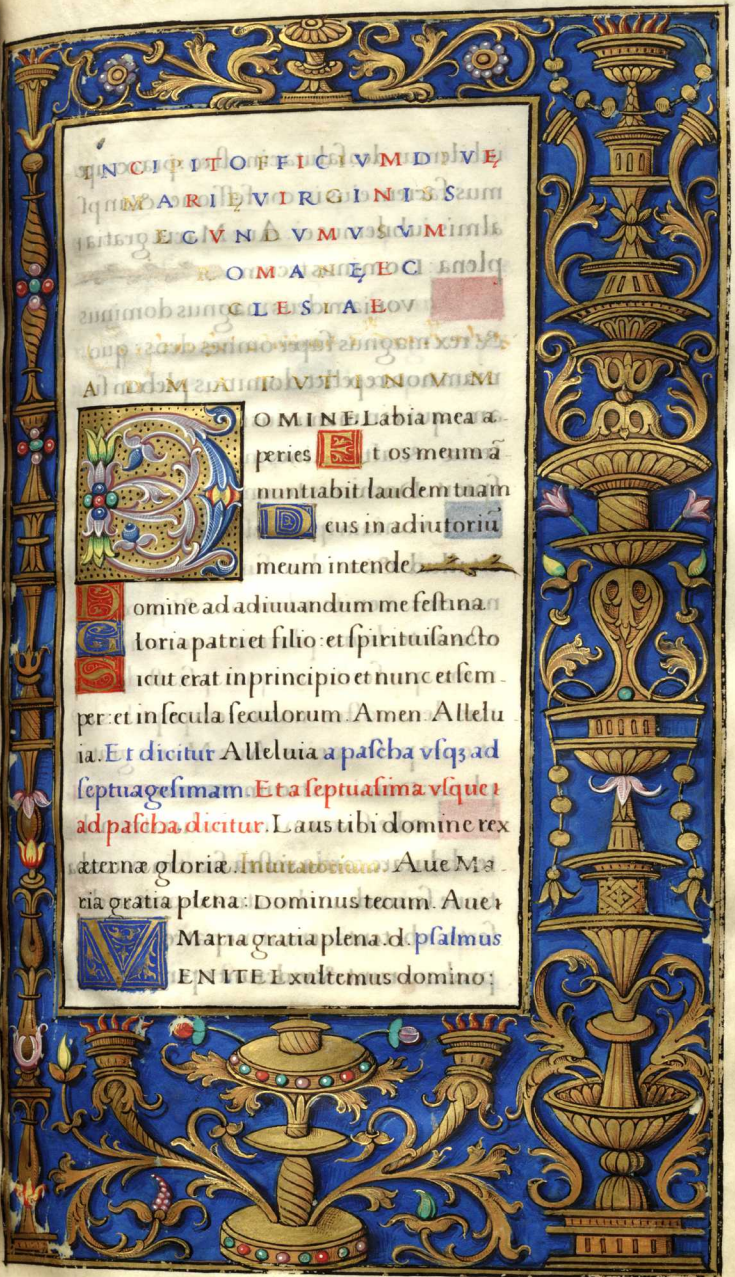 INCIPIT OFFICIVM DIVE
MARIĘ VIRGINIS S
ECVNDVM VSVM
ROMANĘ EC
CLESIAE
AD MATVTINVM
DOMINE Labia mea a
peries Et os meum ā
nuntiabit laudem tuam
Deus in adiutoriū
meum intende
Domine ad adiuuandum me festina
Gloria patri et filio: et spirituisancto
Sicut erat in principio et nunc et sem
per: et in secula seculorum. Amen. Allelu
ia. Et dicitur Alleluia a pascha vsqꝫ ad
septuagesimam. Et a septuasima vsque
ad pascha dicitur. Laus tibi domine rex
æternæ gloriæ. Inuitatorium. Aue Ma
ria gratia plena: Dominus tecum. Aue
Maria gratia plena. d. psalmus
VENITE Exultemus domino: